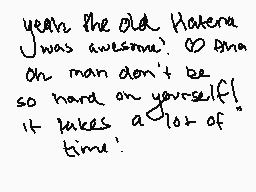 yeah the old Hatena
was awesome! ♡ Ana
Oh man don't be
so hard on yourself!
it takes a lot of
time!